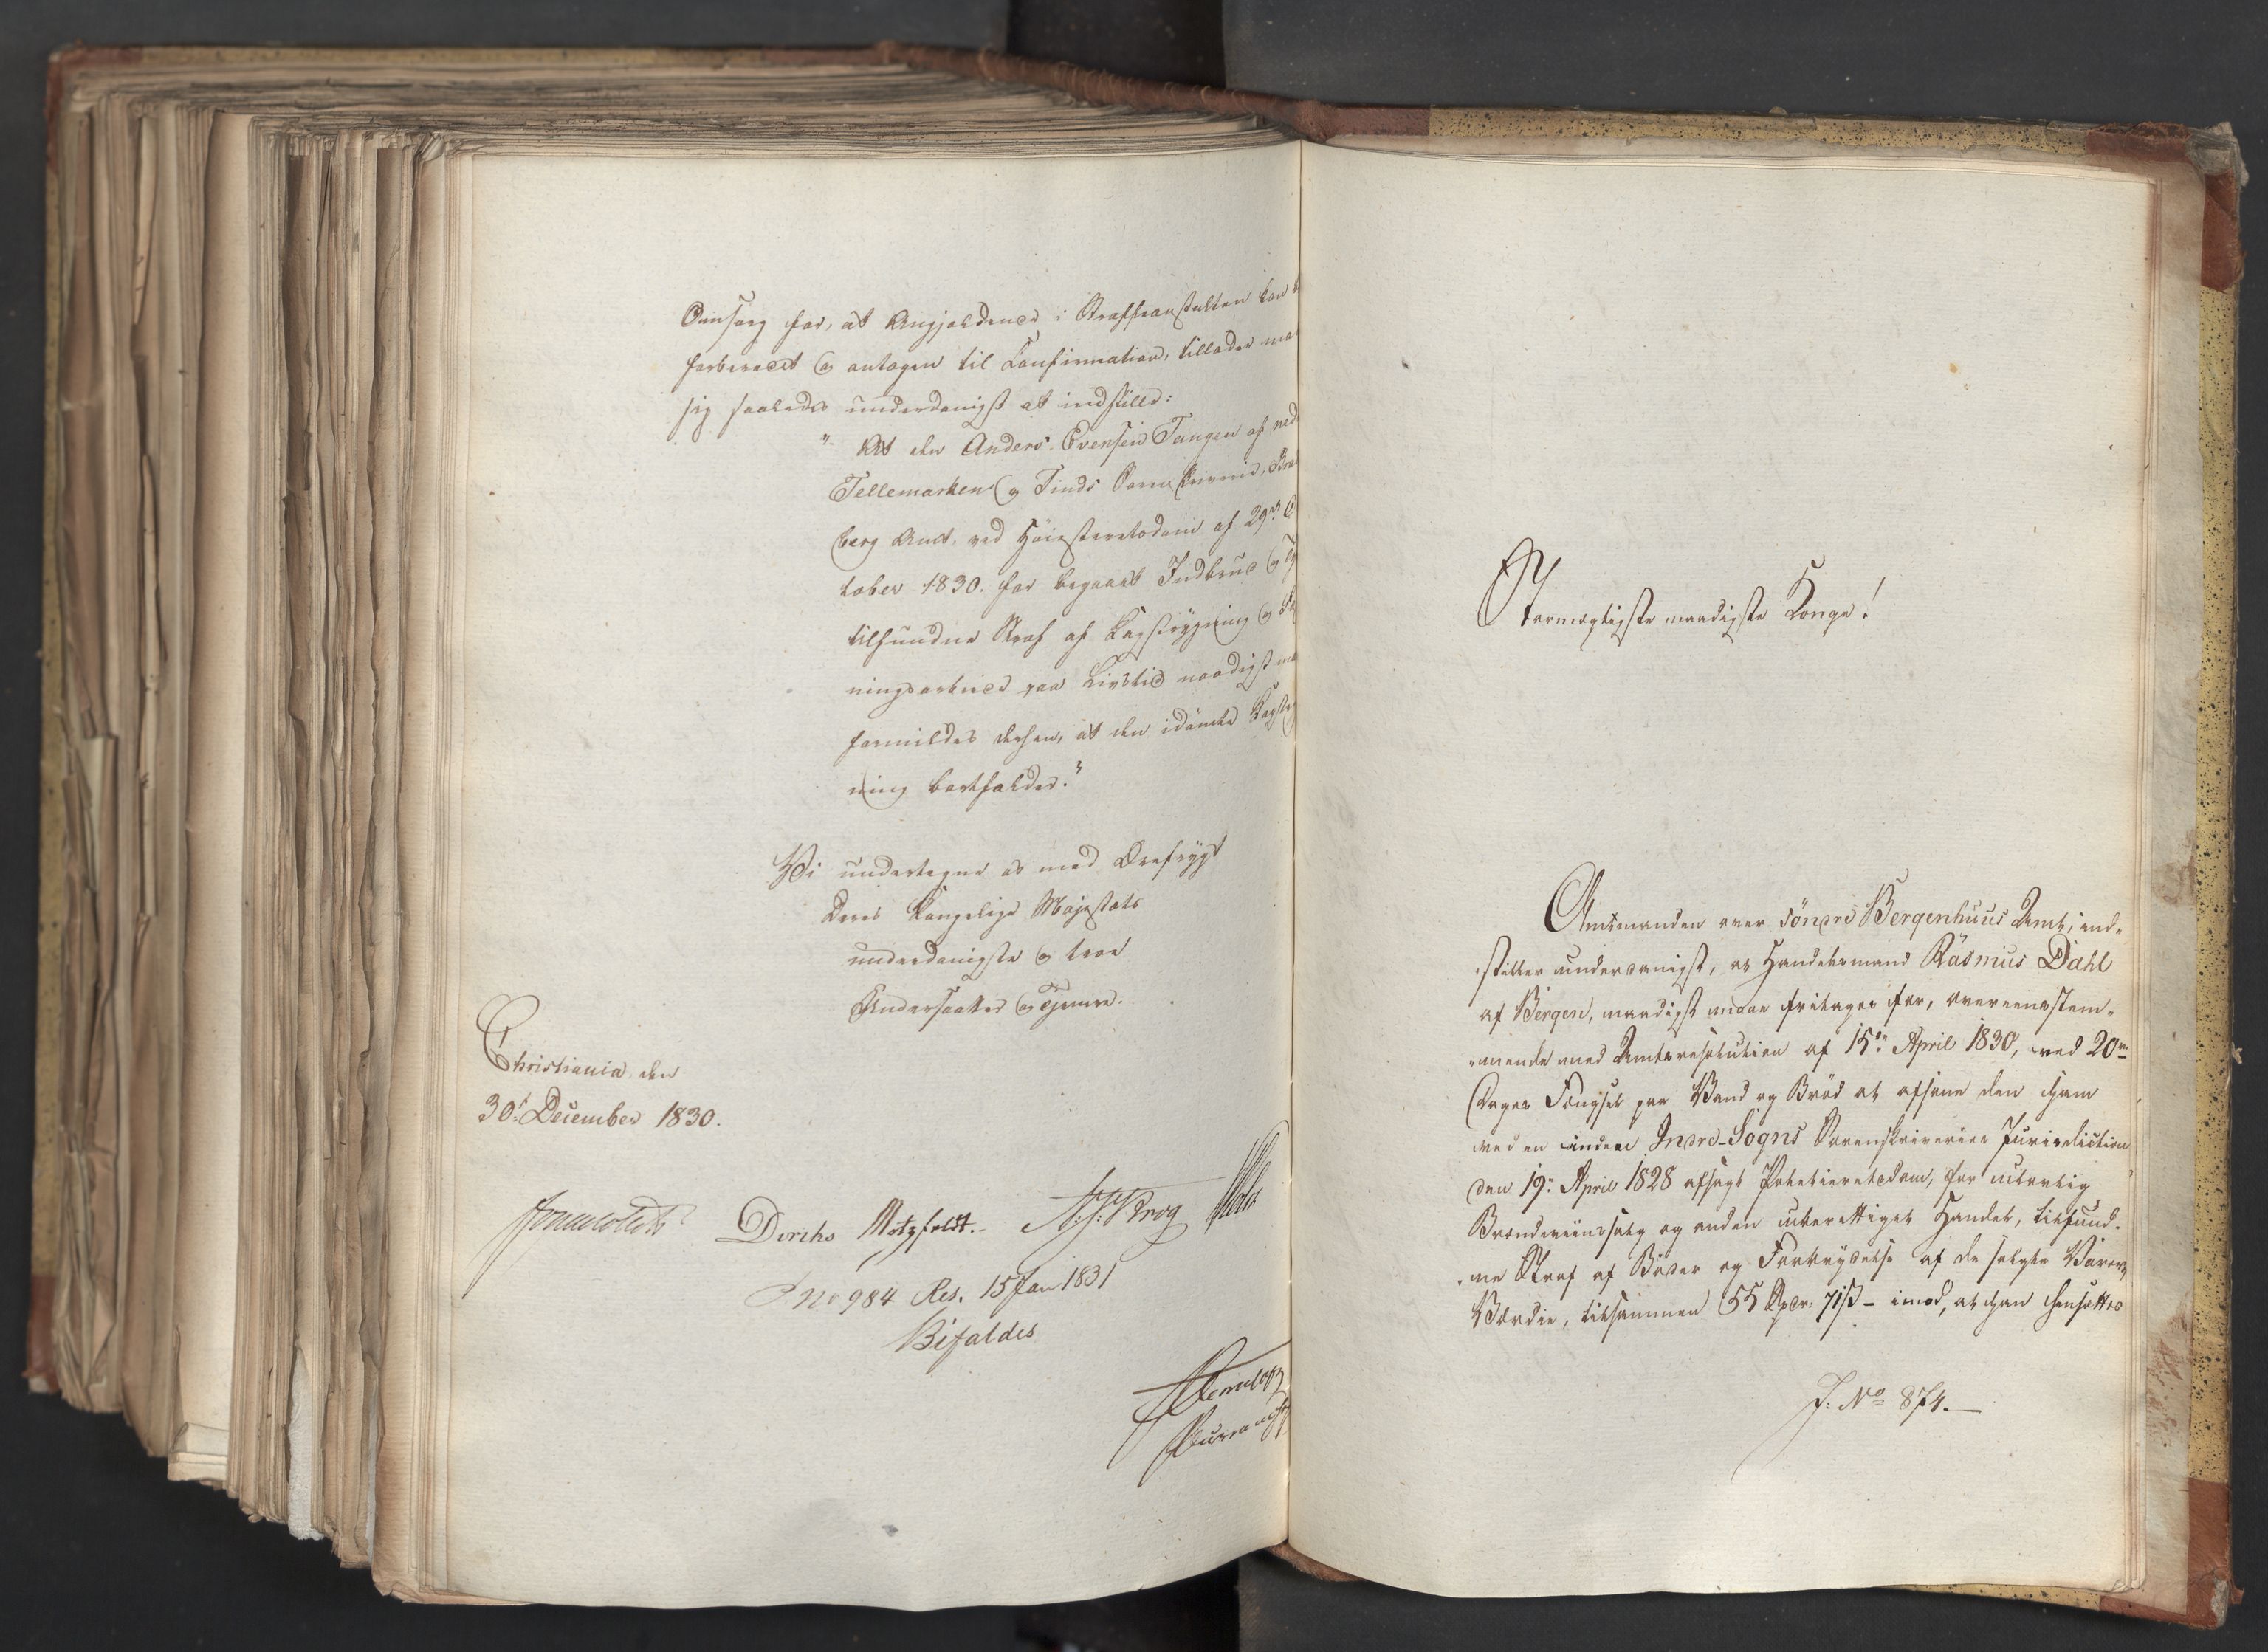 Omsorg for, at Angjældende i Straffeanstalten kan
forberedet og antagen til Confirmation, tillader man
sig saaledes underdanigst at indstille:
" At den Anders Evensen Tangen af ned
Tellemarkens og Tinds Sorenskriverie, Brats
berg Amt, ved Høiesteretsdom af 29de Oc
tober 1830. for begaaet Indbrud og Ty
tilfundne Straf af Kagstrygning og Fæst
ningsarbeide paa Livstid naadigst maa
formildes derhen, at den idømte Kagstryg
ning bortfalder."
Vi undertegne os med Ærefrygt
Deres Kongelige Majestæts
underdanigste og troe
Undersaatter og Tjenere.
Christiania den
30te December 1830.
Diriks Motzfeldt. N. J. Krog Holst
No 984 Res. 15 Jan 1831
Bifaldes
Stormægtigste naadigste Konge!
Amtmanden over søndre Bergenhuus Amt, ind-
stiller underdanigst, at Handelsmand Rasmus Dahl
af Bergen, naadigst maae fritages for, overeensstem-
mende med Amtsresolution af 15de April 1830, ved 20de
Dages Fængsel paa Vand og Brød at afsone den ham
ved en under Indre-Sogns Sorenskriveries Jurisdiction
den 19de April 1828 afsagt Politieretsdom, for ulovlig
Brændeviinssalg og anden uberettiget Handel, tilfund-
ne Straf af Bøder og Forbrydelse af de solgte Varers
Værdie, tilsammen 55 Spdr. 71 ß - imod, at han hensættes
J: No 874.